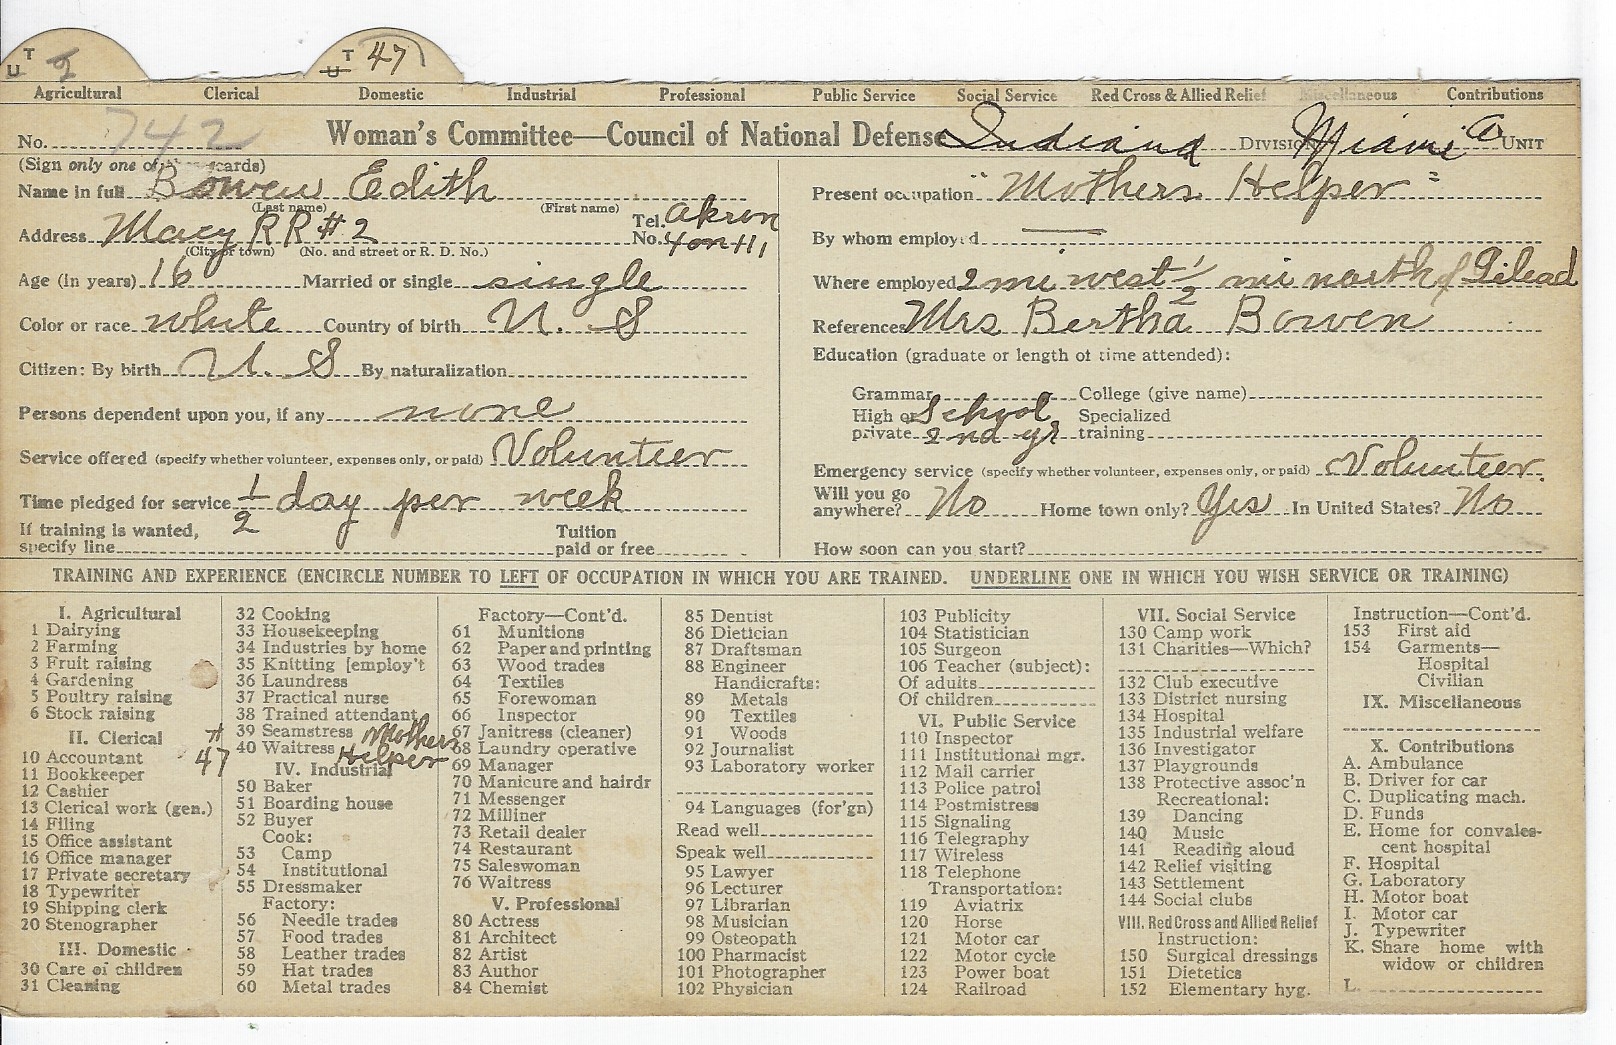 T U 2
T U 47
Agricultural Clerical Domestic Industrial Professional Public Service Social Service Red Cross & Allied Relief Miscellaneous Contributions
No. 742 Woman's Committee—Council of National Defense Indiana Division Miami Unit
(Sign only one of these cards)
Name in full Bowen Edith
(Last name) (First name)
Address Macy RR #2 Tel. No. Akron 4 on 111
(City or town) (No. and street or R. D. No.)
Age (in years) 16 Married or single single
Color or race white Country of birth U. S
Citizen: By birth U. S By naturalization
Persons dependent upon you, if any none
Service offered (specify whether volunteer, expenses only, or paid) Volunteer
Time pledged for service 1/2 day per week
If training is wanted, specify line Tuition paid or free
Present occupation "Mothers Helper"
By whom employed —
Where employed 2 mi west 1/2 mi north of Gilead
References Mrs Bertha Bowen
Education (graduate or length of time attended):
Grammar College (give name)
High or private School 2nd yr Specialized training
Emergency service (specify whether volunteer, expenses only, or paid) Volunteer.
Will you go anywhere? No Home town only? Yes In United States? No
How soon can you start?
TRAINING AND EXPERIENCE (ENCIRCLE NUMBER TO LEFT OF OCCUPATION IN WHICH YOU ARE TRAINED. UNDERLINE ONE IN WHICH YOU WISH SERVICE OR TRAINING)
I. Agricultural
1 Dairying
2 Farming
3 Fruit raising
4 Gardening
5 Poultry raising
6 Stock raising
II. Clerical
10 Accountant
11 Bookkeeper
12 Cashier
13 Clerical work (gen.)
14 Filing
15 Office assistant
16 Office manager
17 Private secretary
18 Typewriter
19 Shipping clerk
20 Stenographer
III. Domestic
30 Care of children
31 Cleaning
32 Cooking
33 Housekeeping
34 Industries by home
35 Knitting [employ't
36 Laundress
37 Practical nurse
38 Trained attendant
39 Seamstress
40 Waitress
# 47 Mothers Helper
IV. Industrial
50 Baker
51 Boarding house
52 Buyer
Cook:
53 Camp
54 Institutional
55 Dressmaker
Factory:
56 Needle trades
57 Food trades
58 Leather trades
59 Hat trades
60 Metal trades
Factory—Cont'd.
61 Munitions
62 Paper and printing
63 Wood trades
64 Textiles
65 Forewoman
66 Inspector
67 Janitress (cleaner)
68 Laundry operative
69 Manager
70 Manicure and hairdr
71 Messenger
72 Milliner
73 Retail dealer
74 Restaurant
75 Saleswoman
76 Waitress
V. Professional
80 Actress
81 Architect
82 Artist
83 Author
84 Chemist
85 Dentist
86 Dietician
87 Draftsman
88 Engineer
Handicrafts:
89 Metals
90 Textiles
91 Woods
92 Journalist
93 Laboratory worker
94 Languages (for'gn)
Read well
Speak well
95 Lawyer
96 Lecturer
97 Librarian
98 Musician
99 Osteopath
100 Pharmacist
101 Photographer
102 Physician
103 Publicity
104 Statistician
105 Surgeon
106 Teacher (subject):
Of adults
Of children
VI. Public Service
110 Inspector
111 Institutional mgr.
112 Mail carrier
113 Police patrol
114 Postmistress
115 Signaling
116 Telegraphy
117 Wireless
118 Telephone
Transportation:
119 Aviatrix
120 Horse
121 Motor car
122 Motor cycle
123 Power boat
124 Railroad
VII. Social Service
130 Camp work
131 Charities—Which?
132 Club executive
133 District nursing
134 Hospital
135 Industrial welfare
136 Investigator
137 Playgrounds
138 Protective assoc'n
Recreational:
139 Dancing
140 Music
141 Reading aloud
142 Relief visiting
143 Settlement
144 Social clubs
VIII. Red Cross and Allied Relief
Instruction:
150 Surgical dressings
151 Dietetics
152 Elementary hyg.
Instruction—Cont'd.
153 First aid
154 Garments—
Hospital
Civilian
IX. Miscellaneous
X. Contributions
A. Ambulance
B. Driver for car
C. Duplicating mach.
D. Funds
E. Home for convales-
cent hospital
F. Hospital
G. Laboratory
H. Motor boat
I. Motor car
J. Typewriter
K. Share home with
widow or children
L.